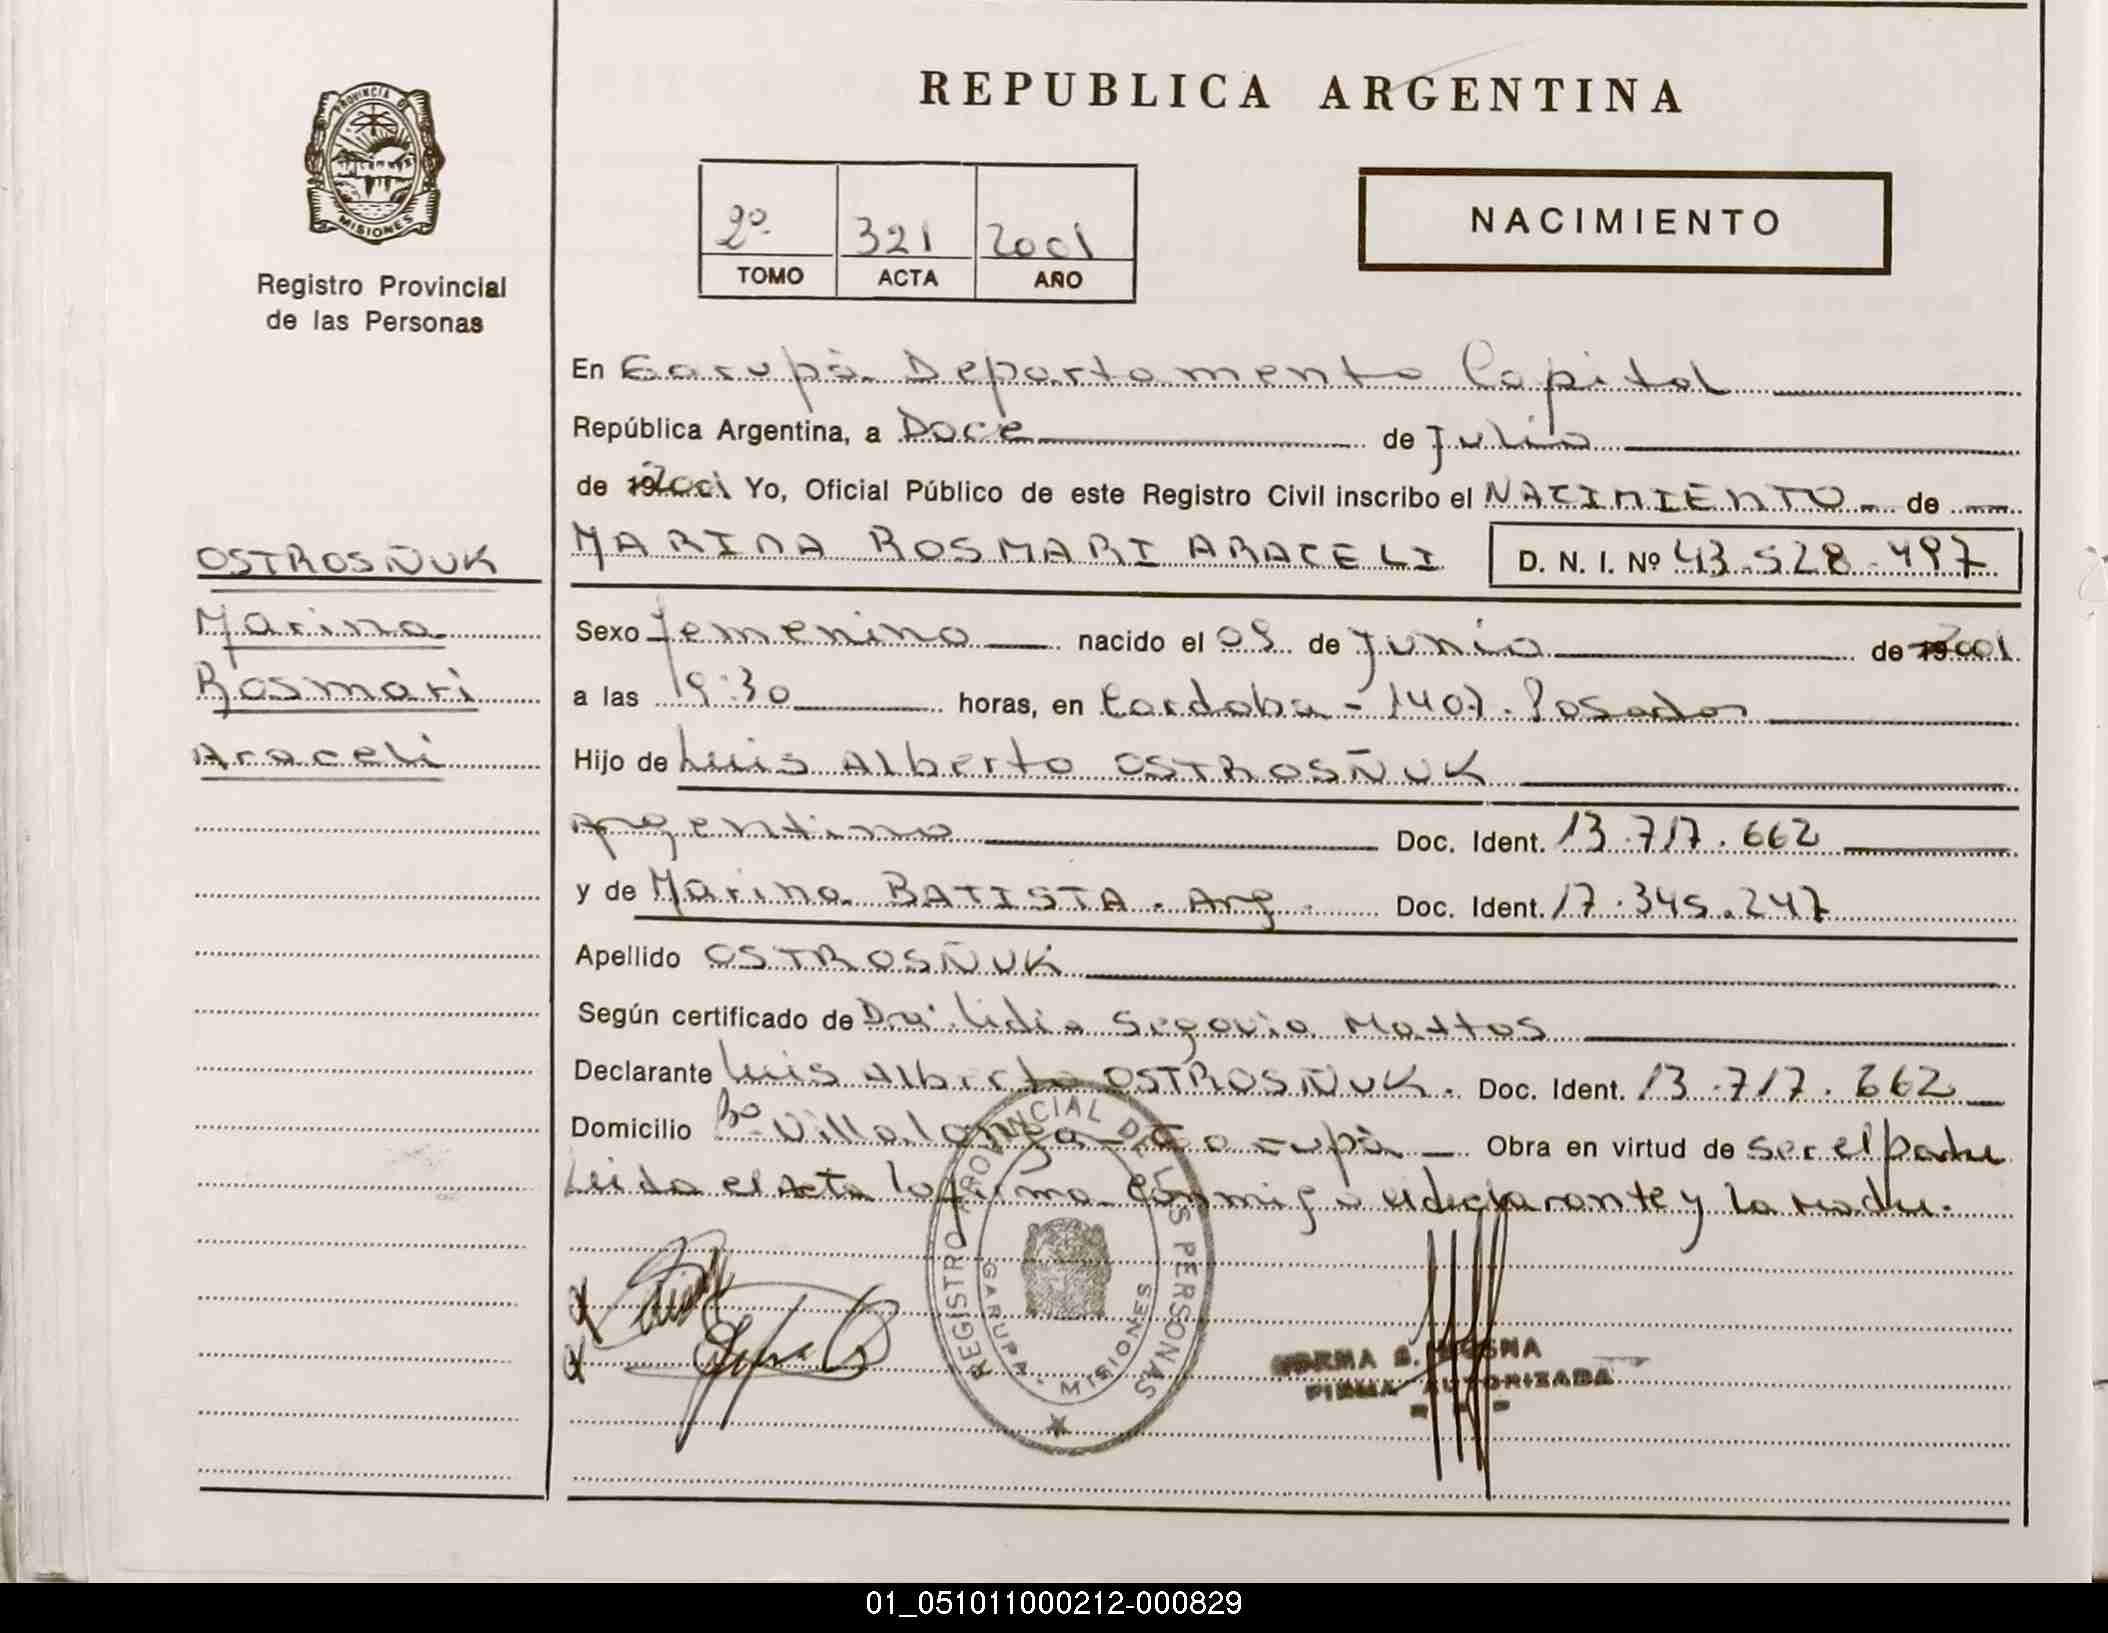 REPUBLICA ARGENTINA
PROVINCIA D
MISIONES
Registro Provincial
de las Personas
2º 321 2001
TOMO ACTA AÑO
NACIMIENTO
En Garupà Departamento Capital
República Argentina, a Doce de Julio
de 2001 Yo, Oficial Público de este Registro Civil inscribo el NACIMIENTO de
OSTROSÑUK
MARINA ROSMARI ARACELI D. N. I. Nº 43.528.497
Marina
Sexo Femenino nacido el 09 de Junio de 2001
Rosmari
a las 19:30 horas, en Cordoba - 1407. Posadas
Araceli
Hijo de Luis Alberto OSTROSÑUK
Argentino Doc. Ident. 13.717.662
y de Marina BATISTA. Arg. Doc. Ident. 17.345.247
Apellido OSTROSÑUK
Según certificado de Dra. Lidia Segovia Mattos
Declarante Luis Alberto OSTROSÑUK. Doc. Ident. 13.717.662
Domicilio Bº Villalonga - Garupà Obra en virtud de ser el padre
Leida el acta la firma conmigo el declarante y la madre.
REGISTRO PROVINCIAL DE LAS PERSONAS
GARUPA - MISIONES
NORMA
FIRMA AUTORIZADA
01_051011000212-000829